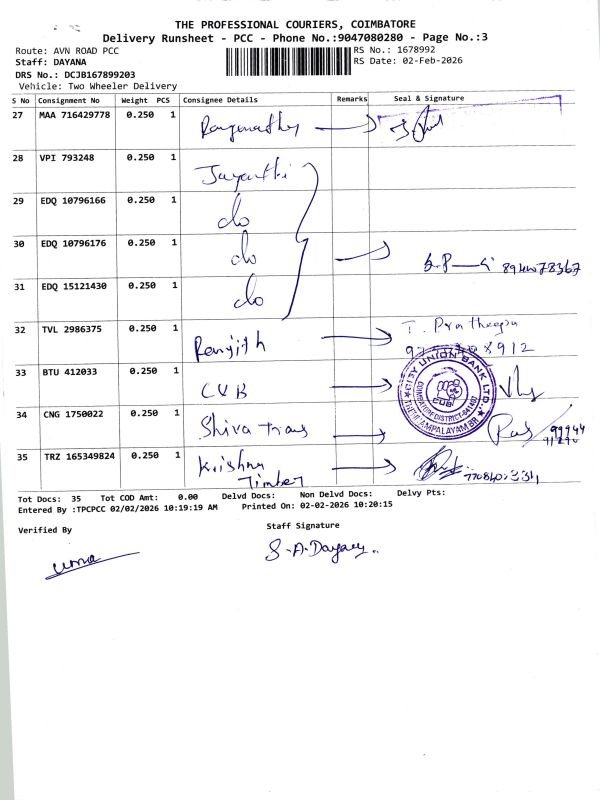 THE PROFESSIONAL COURIERS, COIMBATORE
Delivery Runsheet - PCC - Phone No.:9047080280 - Page No.:3
Route: AVN ROAD PCC
RS No.: 1678992
Staff: DAYANA
RS Date: 02-Feb-2026
DRS No.: DCJB167899203
Vehicle: Two Wheeler Delivery
S No Consignment No Weight PCS Consignee Details Remarks Seal & Signature
27 MAA 716429778 0.250 1
28 VPI 793248 0.250 1 Jayanthi
29 EDQ 10796166 0.250 1 do
30 EDQ 10796176 0.250 1 do
31 EDQ 15121430 0.250 1 do
32 TVL 2986375 0.250 1 Renjith
33 BTU 412033 0.250 1 CUB
CITY UNION BANK LTD.
CUB
34 CNG 1750022 0.250 1 Shiva Trans
35 TRZ 165349824 0.250 1 Krishna
Timber
Tot Docs: 35 Tot COD Amt: 0.00 Delvd Docs: Non Delvd Docs: Delvy Pts:
Entered By :TPCPCC 02/02/2026 10:19:19 AM Printed On: 02-02-2026 10:20:15
Verified By
Staff Signature
uma
S.A.Dayany..